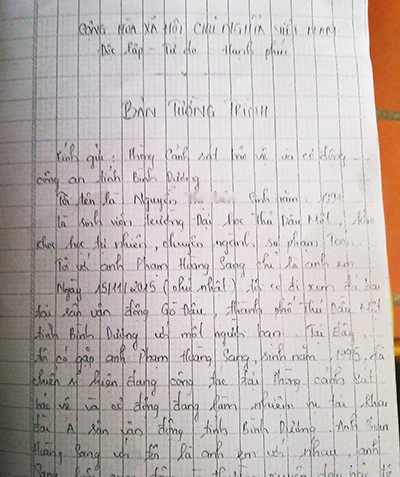 CỘNG HÒA XÃ HỘI CHỦ NGHĨA VIỆT NAM
Độc lập - Tự do - Hạnh phúc
BẢN TƯỜNG TRÌNH
Kính gửi: Phòng Cảnh sát bảo vệ và cơ động -
công an tỉnh Bình Dương
Tôi tên là Nguyễn sinh năm: 1994
là sinh viên trường Đại học Thủ Dầu Một, khoa
khoa học tự nhiên, chuyên ngành sư phạm Toán.
Tôi với anh Phạm Hoàng Sang chỉ là anh em
Ngày 15/11/2015 (chủ nhật) tôi có đi xem đá bóng
tại sân vận động Gò Đậu, thành phố Thủ Dầu Một
tỉnh Bình Dương với một người bạn. Tại đây,
tôi có gặp anh Phạm Hoàng Sang, sinh năm 1995, là
chiến sĩ hiện đang công tác tại Phòng cảnh sát
bảo vệ và cơ động đang làm nhiệm vụ tại khán
đài A sân vận động tỉnh Bình Dương. Anh
Hoàng Sang với tôi là anh em với nhau, anh
Sang